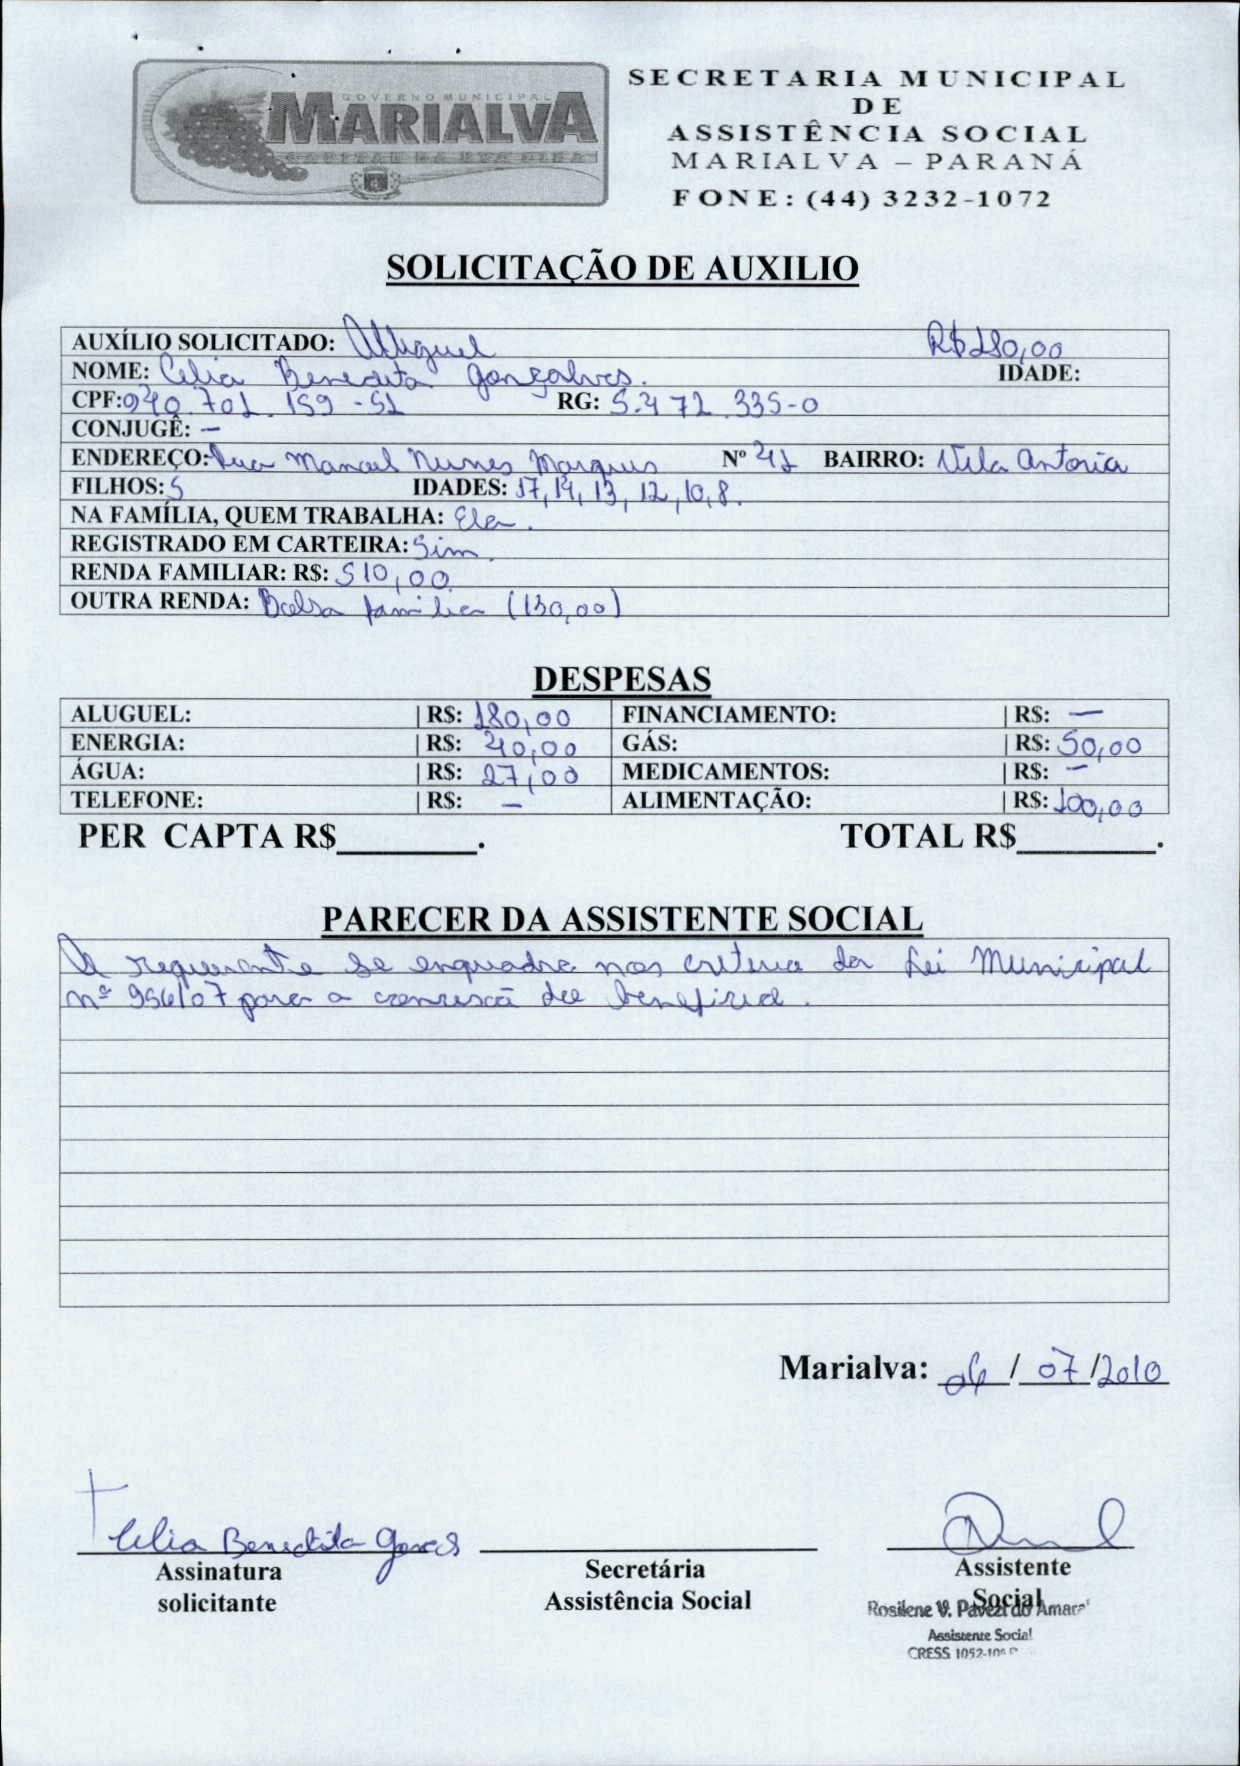 GOVERNO MUNICIPAL
MARIALVA
CAPITAL DA UVA FINA
SECRETARIA MUNICIPAL
DE
ASSISTÊNCIA SOCIAL
MARIALVA – PARANÁ
FONE: (44) 3232-1072
SOLICITAÇÃO DE AUXILIO
AUXÍLIO SOLICITADO: Alluguel R$ 180,00
NOME: Celia Benedita Gonçalves. IDADE:
CPF: 940.701.159-51 RG: 5.472.335-0
CONJUGÊ: –
ENDEREÇO: Rua Manoel Nunes Marques Nº 41 BAIRRO: Vila Antonia
FILHOS: 5 IDADES: 17, 14, 13, 12, 10, 8.
NA FAMÍLIA, QUEM TRABALHA: Ela.
REGISTRADO EM CARTEIRA: Sim.
RENDA FAMILIAR: R$: 510,00
OUTRA RENDA: Bolsa família (130,00)
DESPESAS
ALUGUEL: | R$: 180,00 FINANCIAMENTO: | R$: –
ENERGIA: | R$: 40,00 GÁS: | R$: 50,00
ÁGUA: | R$: 27,00 MEDICAMENTOS: | R$: –
TELEFONE: | R$: – ALIMENTAÇÃO: | R$: 100,00
PER CAPTA R$________. TOTAL R$________.
PARECER DA ASSISTENTE SOCIAL
A requerente se enquadra nos criterios da Lei Municipal
nº 956/07 para a concessão do beneficio.
Marialva: 06 / 07 /2010
Celia Benedita
Assinatura Secretária Assistente
solicitante Assistência Social Social
Rosilene V. Pavezi do Amaral
Assistente Social
CRESS 1052-10ª